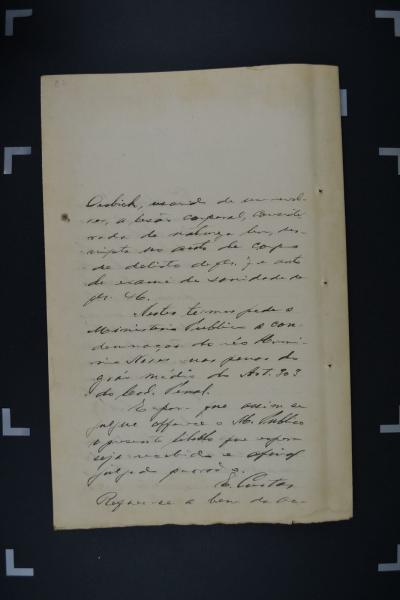 Diebich, usando de um revol-
ver, a lesão corporal, conside
rada de natureza leve, des-
cripta no auto de corpo
de delicto de fls. 7 e auto
de exame de sanidade de
fls. 46.
Nestes termos pede o
Ministerio Publico a con-
demnação do réo
nas penas do
gráo médio do Art. 303
do Cod. Penal.
E para que assim se
julgue offerece o M. Publico
o presente libello que espera
seja recebido e afinal
julgado provado.
E. Custas
Requer-se a bem da